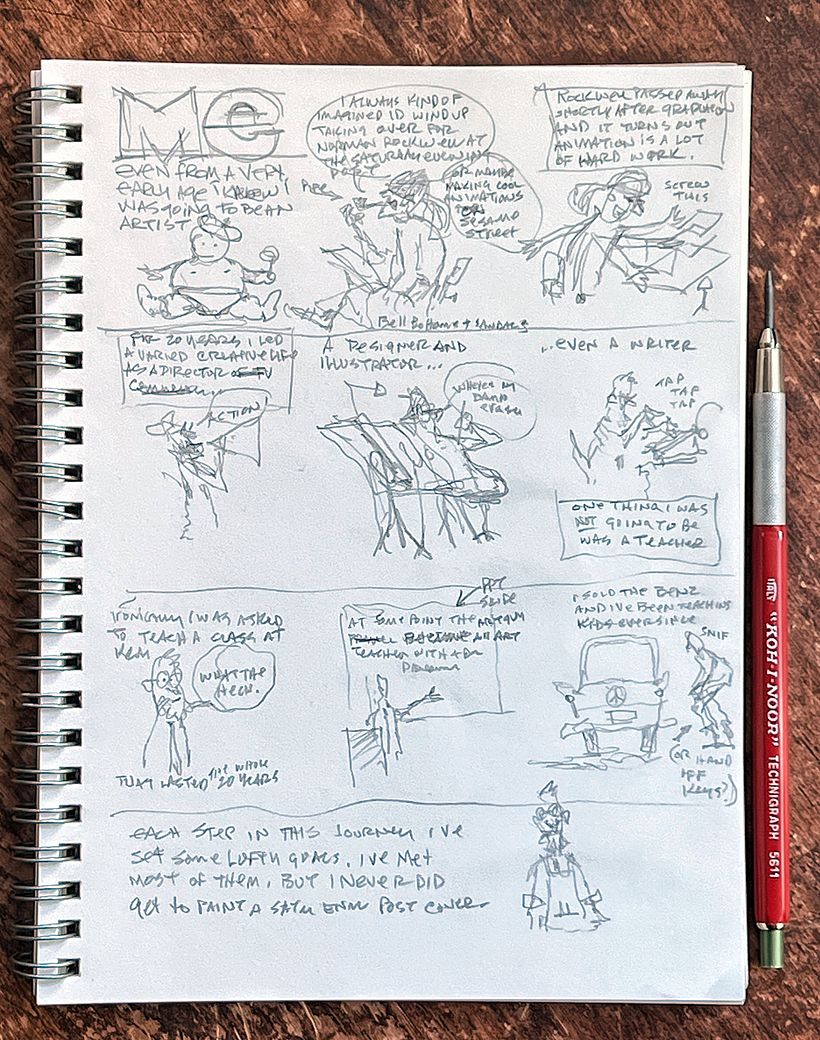 ME
EVEN FROM A VERY
EARLY AGE I KNEW I
WAS GOING TO BE AN
ARTIST
I ALWAYS KIND OF
IMAGINED I'D WIND UP
TAKING OVER FOR
NORMAN ROCKWELL AT
THE SATURDAY EVENING
POST
PIPE
OR MAYBE
MAKING COOL
ANIMATIONS
FOR
SESAME
STREET
Bell Bottoms + SANDALS
ROCKWELL PASSED AWAY
SHORTLY AFTER GRADUATION
AND IT TURNS OUT
ANIMATION IS A LOT
OF HARD WORK.
SCREW
THIS
FOR 20 YEARS I LED
A VARIED CREATIVE LIFE
AS A DIRECTOR OF TV
ACTION
A DESIGNER AND
ILLUSTRATOR...
WHERE'S MY
DAMN
ERASER
...EVEN A WRITER
TAP
TAP
TAP
ONE THING I WAS
NOT GOING TO BE
WAS A TEACHER
IRONICALLY I WAS ASKED
TO TEACH A CLASS AT
KCAI
WHAT THE
HECK.
THAT LASTED THE WHOLE
20 YEARS
PPT
SLIDE
AT SOME POINT THE
BECAME AN ART
TEACHER WITH A
I SOLD THE BENZ
AND I'VE BEEN TEACHING
KIDS EVER SINCE
SNIF
(OR HAND
OFF
KEYS?)
EACH STEP IN THIS JOURNEY I'VE
SET SOME LOFTY GOALS. I'VE MET
MOST OF THEM, BUT I NEVER DID
GET TO PAINT A SAT EVEN POST COVER.
ITALY "KOH-I-NOOR" TECHNIGRAPH 5611